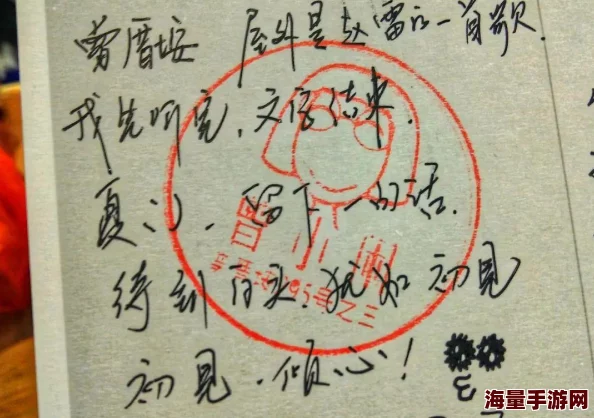 曾厝垵 屋外是赵雷的一首歌.
我先听完.文字结束.
夏心.留下一句话.
待到白头.犹如初见
初见.倾心!
曾厝垵
号之三
海量手游网